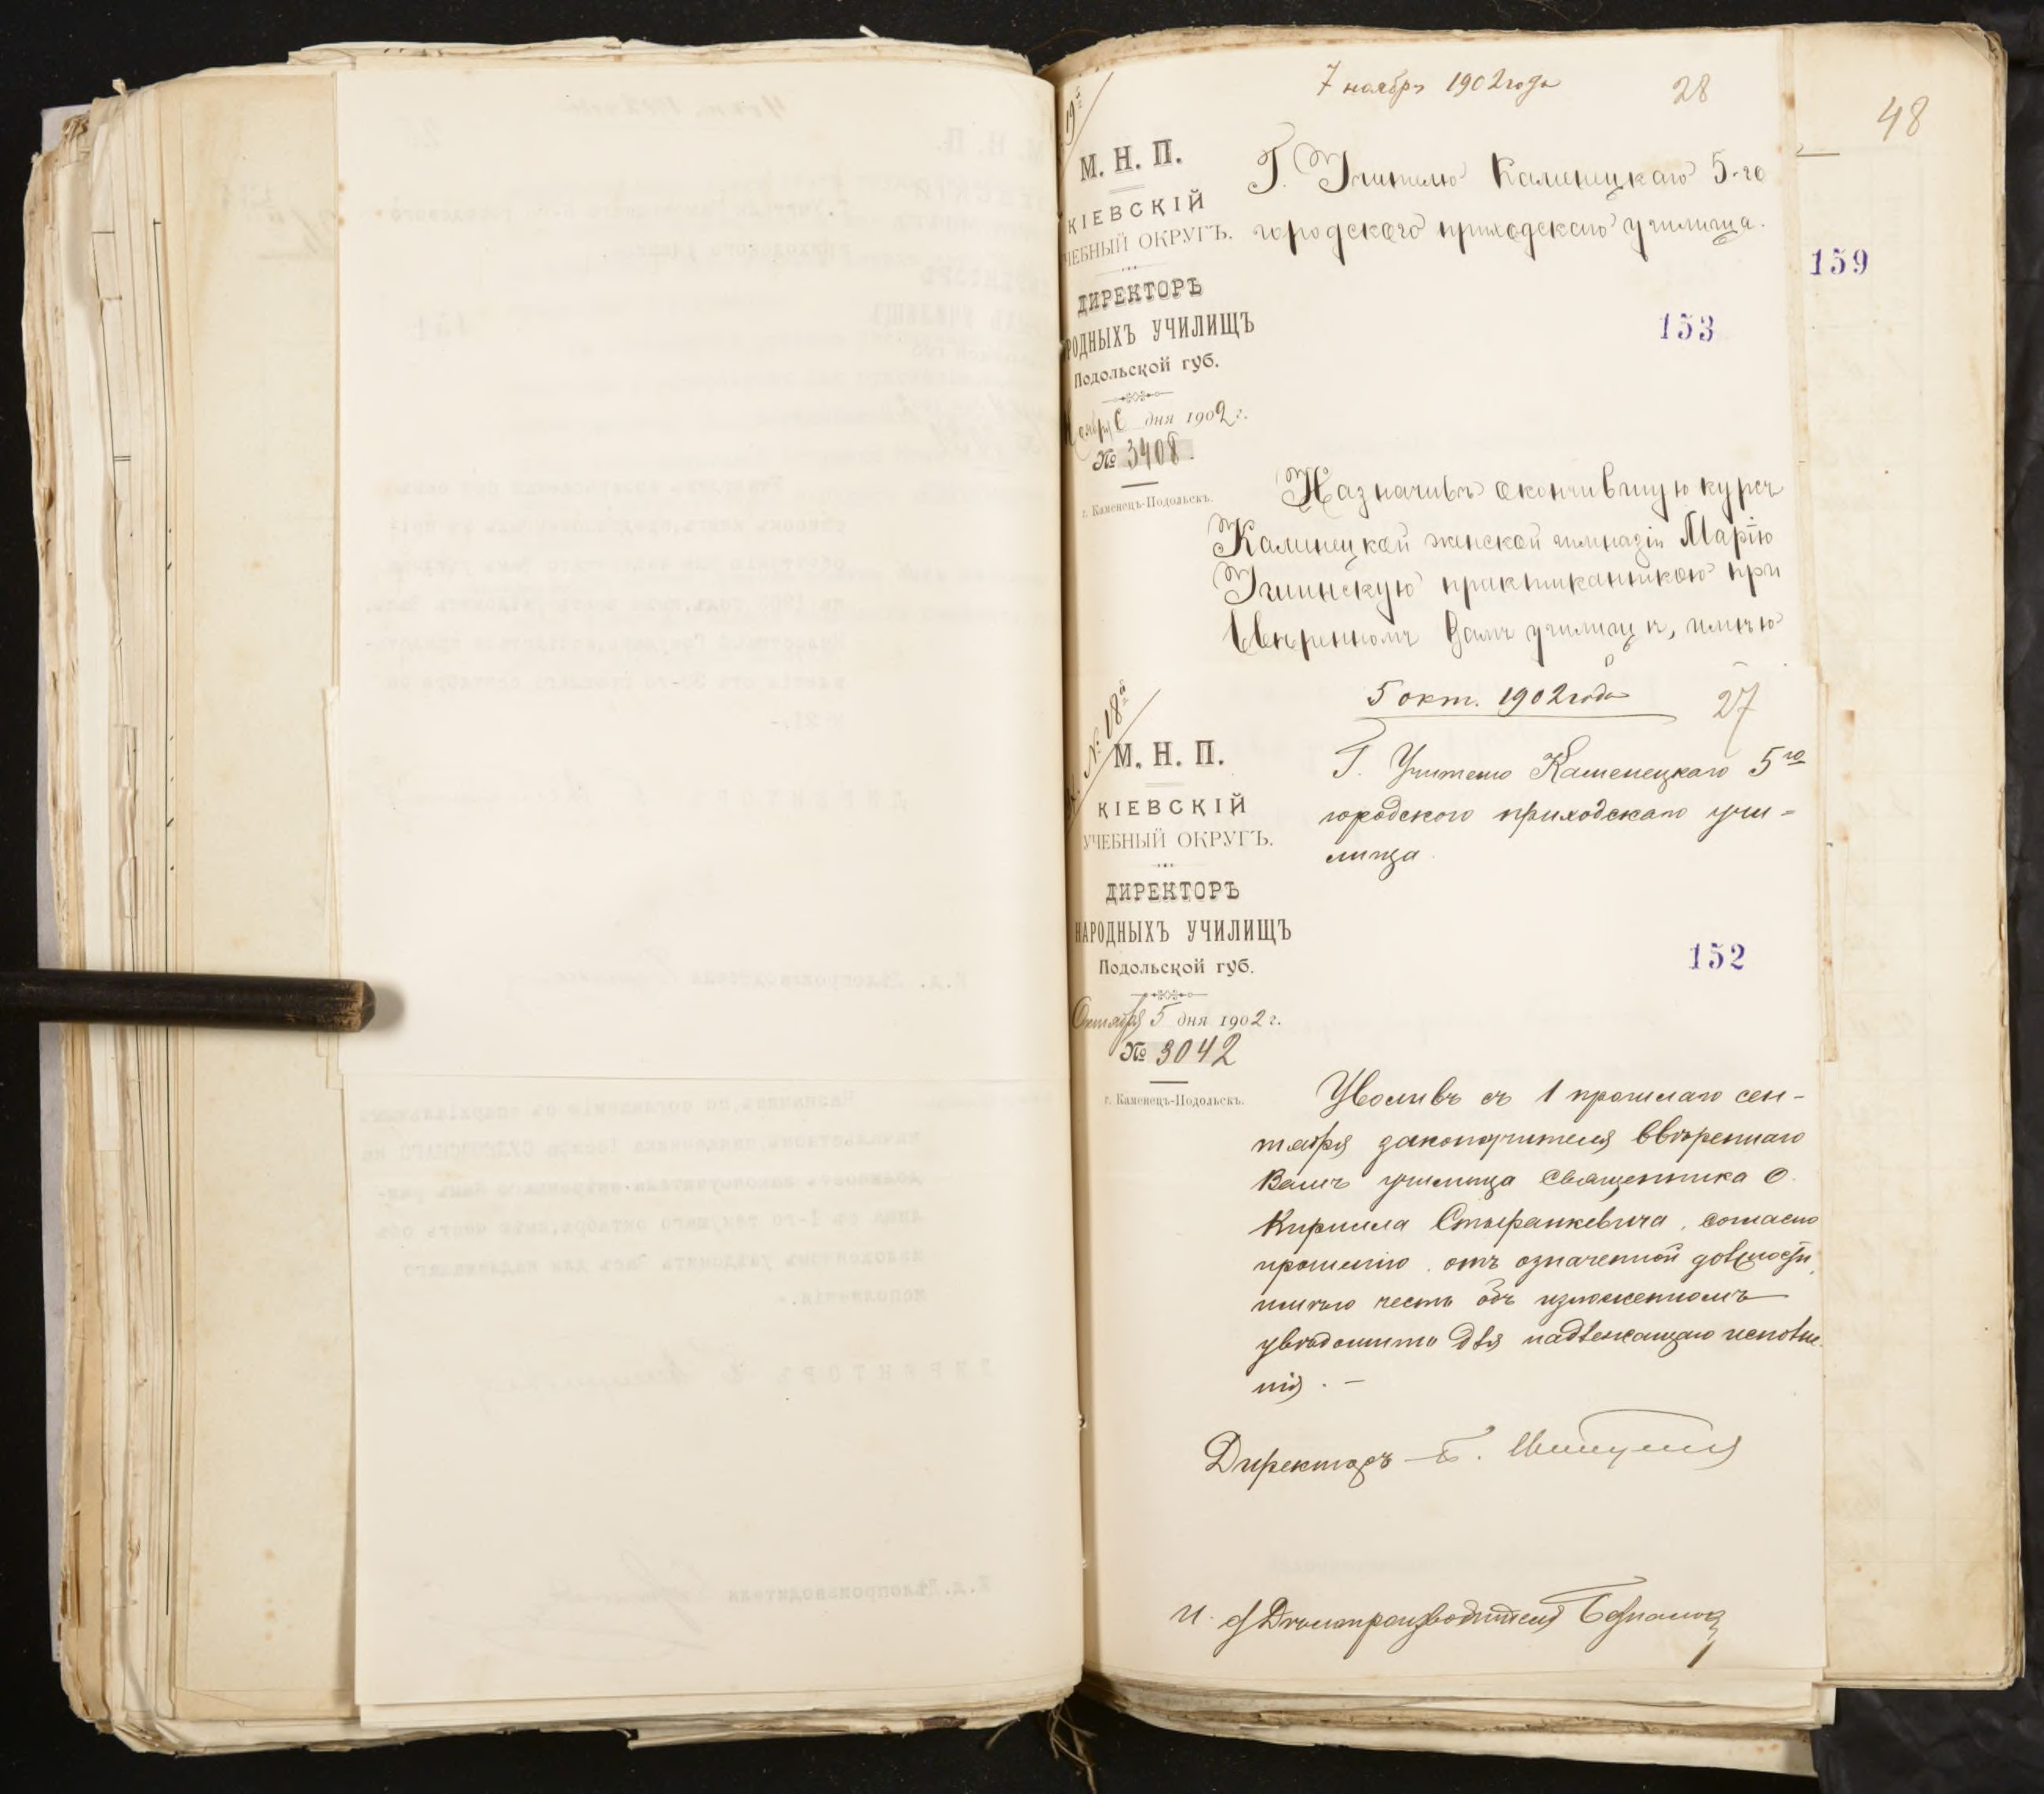 7 ноября 1902 года
28
48
19й
М. Н. П.
КІЕВСКІЙ
ЧЕБНЫЙ ОКРУГЪ.
ДИРЕКТОРЪ
РОДНЫХЪ УЧИЛИЩЪ
Подольской губ.
6 дня 1902 г.
№ 3408.
г. Каменецъ-Подольскъ.
Г. Учителю Каменецкаго 5-го
городского приходскаго училища.
159
153
Назначивъ окончившую курсъ
Каменецкой женской гимназіи Марію
практиканткою при
ввѣренномъ Вамъ училищѣ, имѣю
5 окт. 1902 года
27
№ 18й
М. Н. П.
КІЕВСКІЙ
УЧЕБНЫЙ ОКРУГЪ.
ДИРЕКТОРЪ
НАРОДНЫХЪ УЧИЛИЩЪ
Подольской губ.
Октября 5 дня 1902 г.
№ 3042
г. Каменецъ-Подольскъ.
Г. Учителю Каменецкаго 5го
городского приходскаго учи=
лища.
152
Уволивъ съ 1 прошлаго сен-
тября законоучителя ввѣреннаго
Вамъ училища священника о.
Кирилла Стыранкевича, согласно
прошенію, отъ означенной должности,
имѣю честь объ изложенномъ
увѣдомить для надлежащаго исполне-
нія. —
Директоръ
И. д. Дѣлопроизводителя